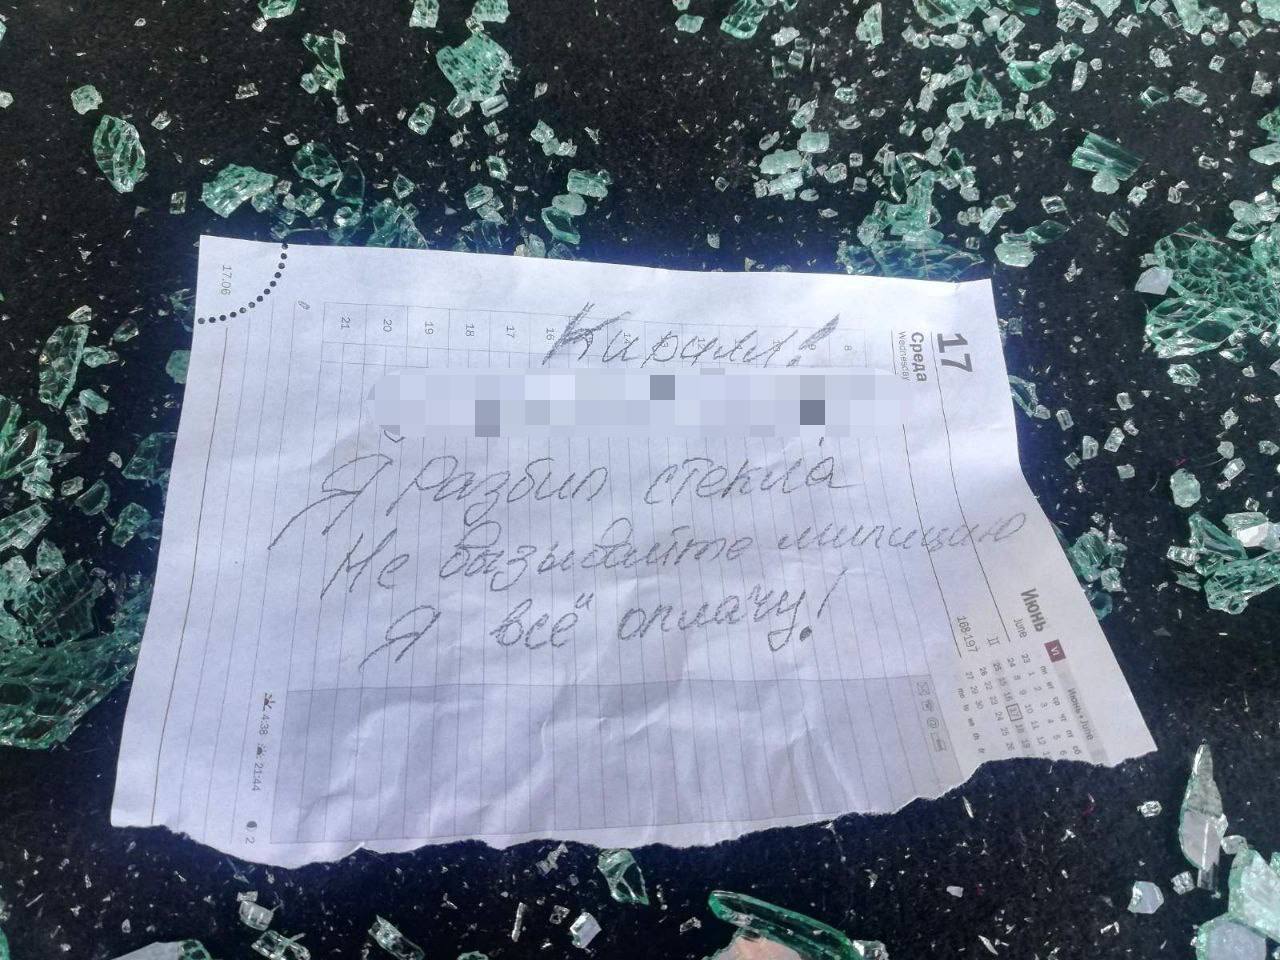 Кирилл!
Я разбил стекла
Не вызывайте милицию
Я всё оплачу!
17
Среда
Wednesday
17.06
21 20 19 18 17 16 14 8
Июнь VI
June
168-197
Июнь•June
4:38 21:44 2